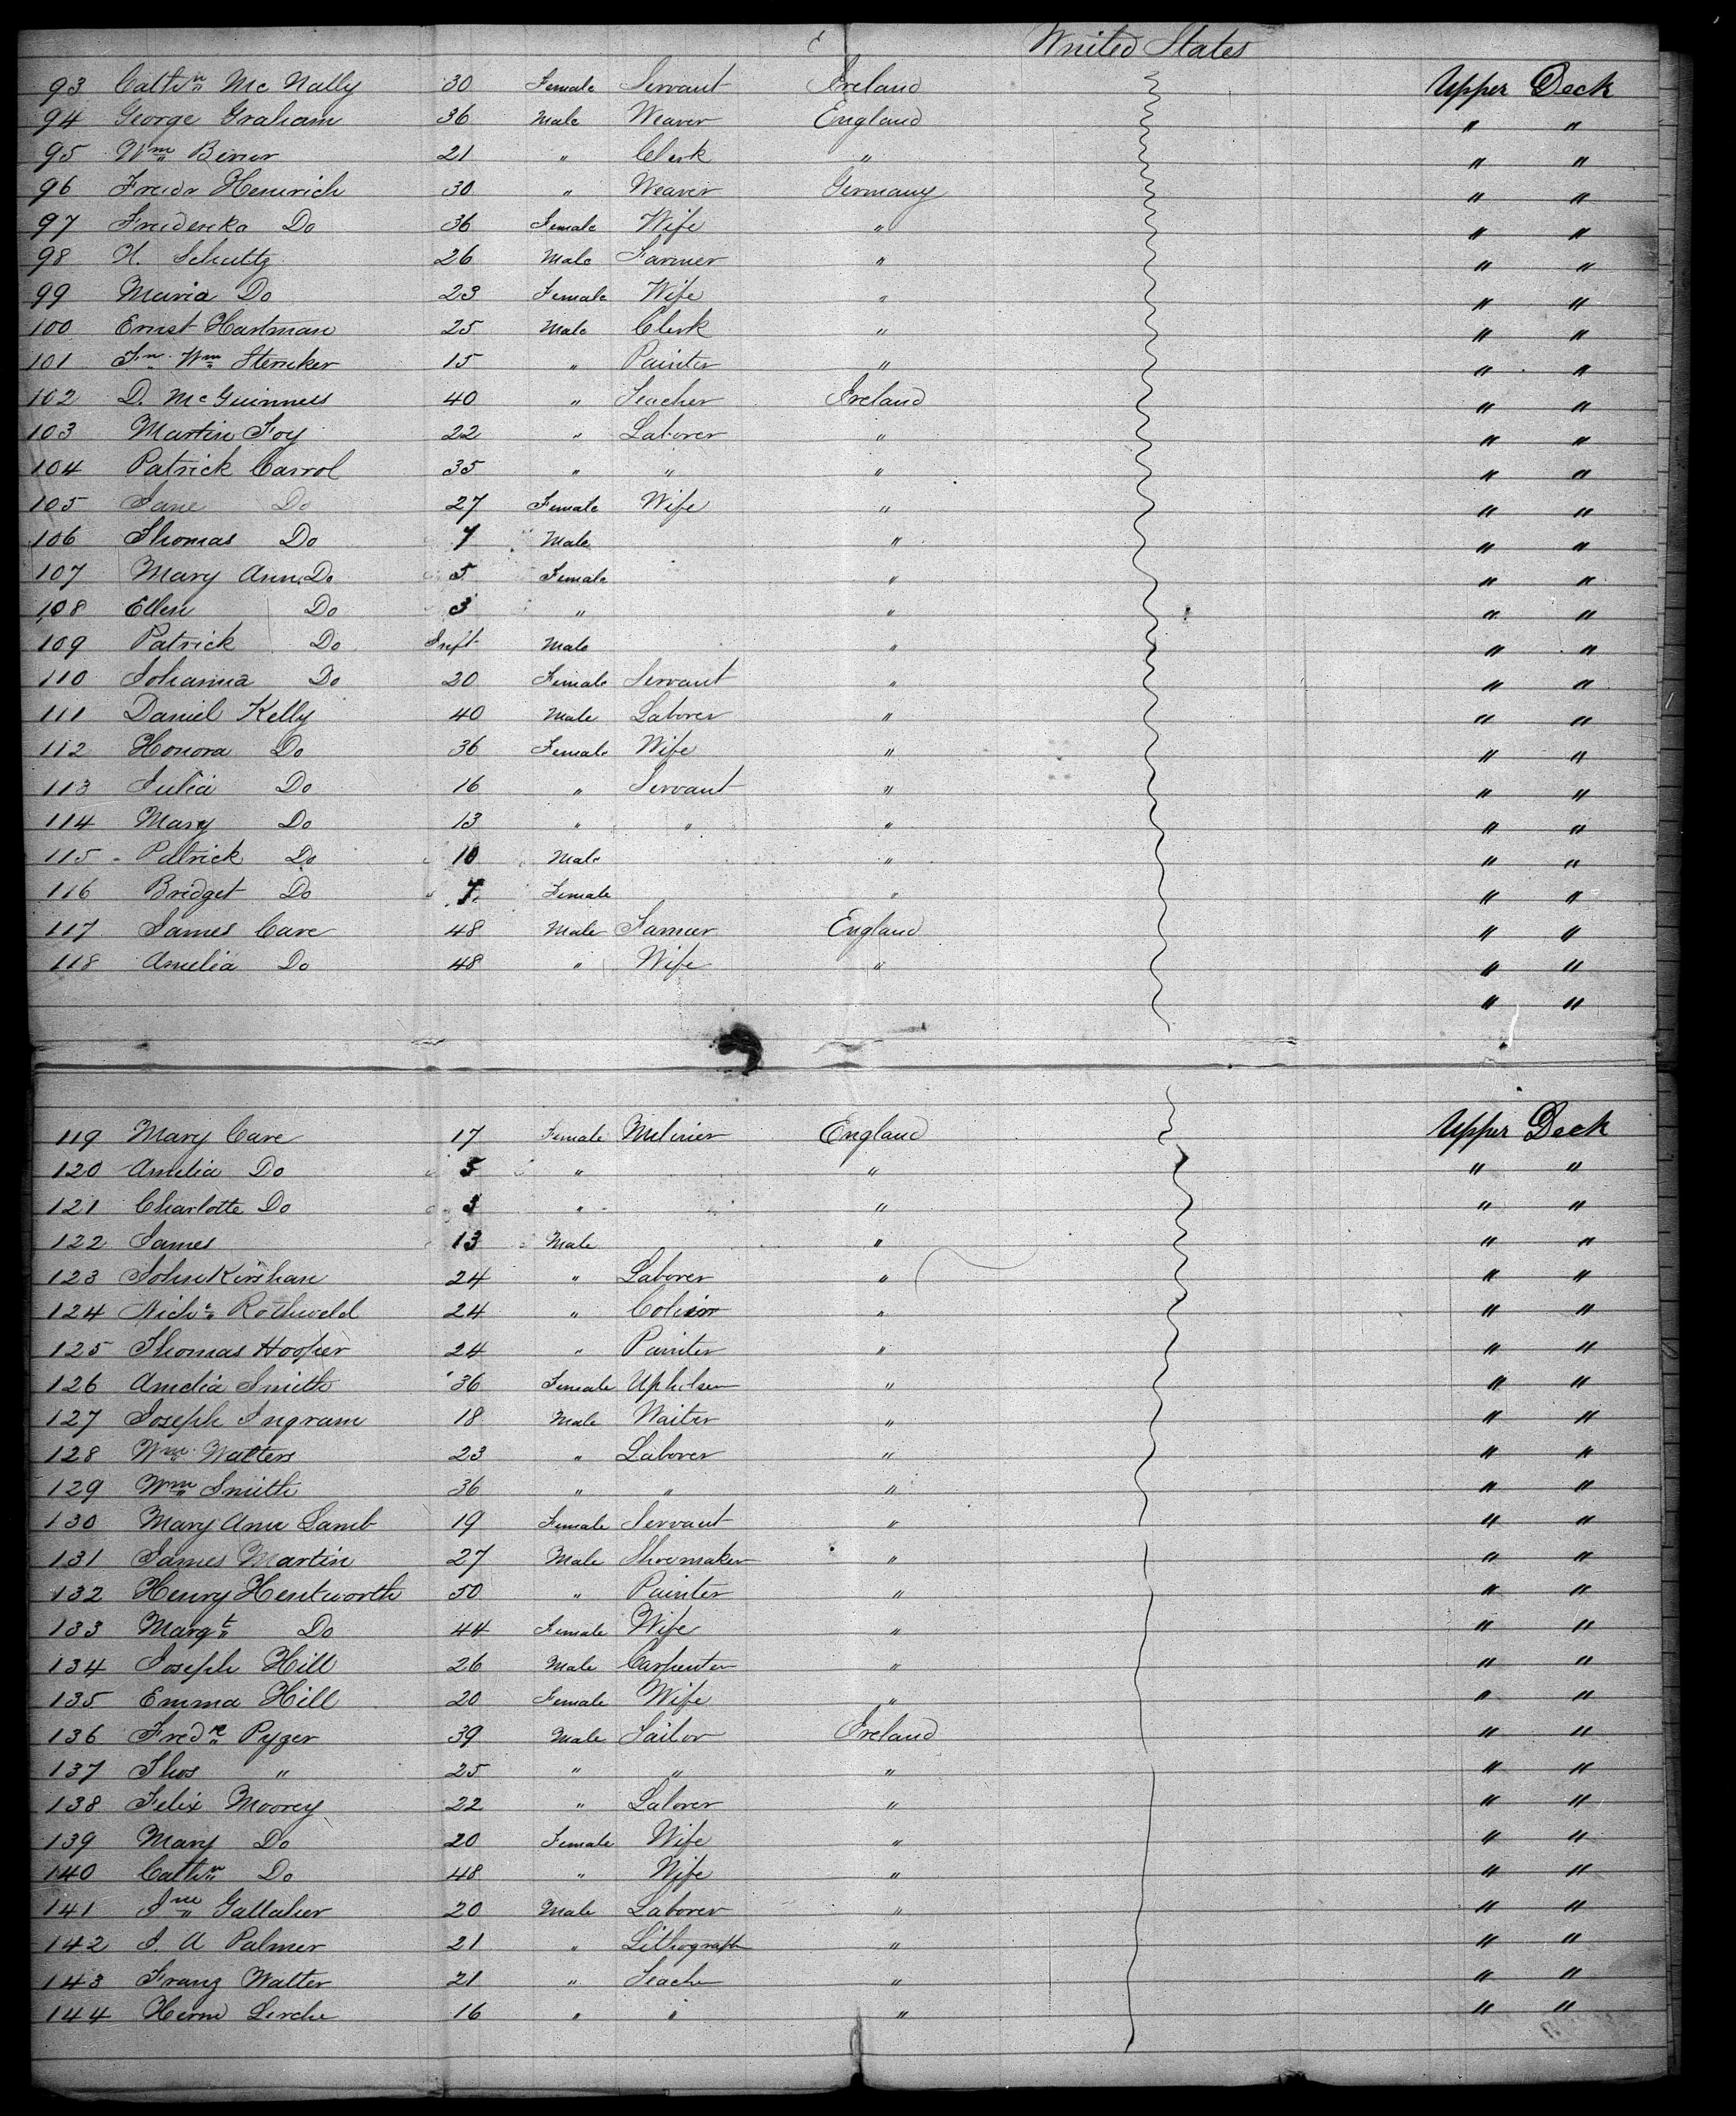 United States
93 Cathn Mc Nally 30 Female Servant Ireland Upper Deck
94 George Graham 36 Male Weaver England " "
95 Wm 21 " Clerk " " "
96 Heinrich 30 " Weaver Germany " "
97 Frederika Do 36 Female Wife " " "
98 H. Schultz 26 Male Farmer " " "
99 Maria Do 23 Female Wife " " "
100 Ernst Hartman 25 Male Clerk " " "
101 Wm Stericker 15 " Painter " " "
102 D. McGuinness 40 " Teacher Ireland " "
103 Martin Foy 22 " Laborer " " "
104 Patrick Carrol 35 " " " " "
105 Jane Do 27 Female Wife " " "
106 Thomas Do 7 Male " " "
107 Mary Ann Do 5 Female " " "
108 Ellen Do 3 " " " "
109 Patrick Do Inft Male " " "
110 Johanna Do 20 Female Servant " " "
111 Daniel Kelly 40 Male Laborer " " "
112 Honora Do 36 Female Wife " " "
113 Julia Do 16 " Servant " " "
114 Mary Do 13 " " " " "
115 Patrick Do 10 Male " " "
116 Bridget Do 7 Female " " "
117 James Care 48 Male Farmer England " "
118 Amelia Do 48 " Wife " " "
" "
119 Mary Care 17 Female Meliner England Upper Deck
120 Amelia Do 5 " " " "
121 Charlotte Do 3 " " " "
122 James 13 Male " " "
123 John Kirshan 24 " Laborer " " "
124 Rothweld 24 " " " "
125 Thomas Hooper 24 " Painter " " "
126 Amelia Smith 36 Female Upholser " " "
127 Joseph Ingram 18 Male Waiter " " "
128 Wm Walters 23 " Laborer " " "
129 Wm Smith 36 " " " " "
130 Mary Ann Lamb 19 Female Servant " " "
131 James Martin 27 Male Shoemaker " " "
132 Henry Hentworth 50 " Painter " " "
133 Margt Do 44 Female Wife " " "
134 Joseph Hill 26 Male Carpenter " " "
135 Emma Hill 20 Female Wife " " "
136 Fredk Pyzer 39 Male Tailor Ireland " "
137 Thos " 25 " " " " "
138 Felix Moorey 22 " Laborer " " "
139 Mary Do 20 Female Wife " " "
140 Cathn Do 48 " Wife " " "
141 Gallaher 20 Male Laborer " " "
142 J. A Palmer 21 " Lithograph " " "
143 Franz Walter 21 " Teacher " " "
144 Herm Lerche 16 " " " " "